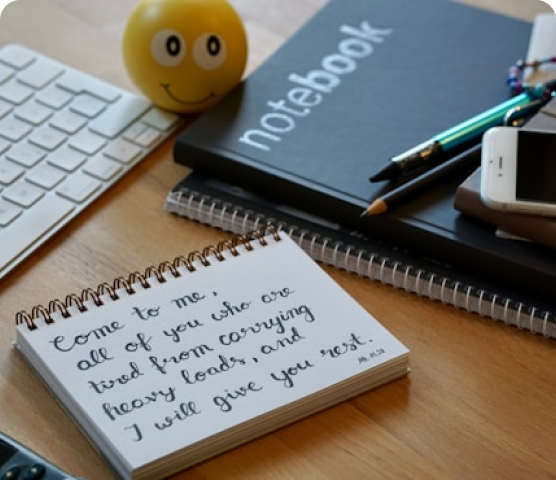 notebook
Come to me,
all of you who are
tired from carrying
heavy loads, and
I will give you rest.